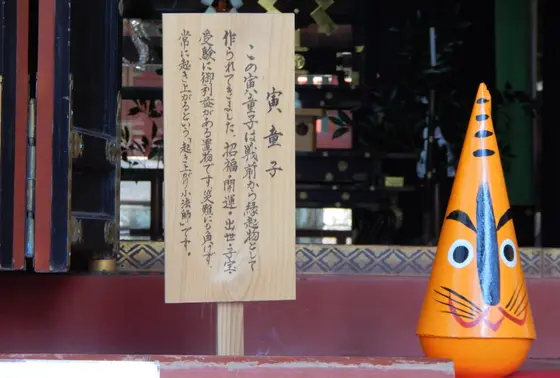 寅童子
この寅童子は戦前から縁起物として
作られてきました。招福・開運・出世・子宝・
受験に御利益がある業物です災難にも負けず、
常に起き上がるという「起き上がり小法師」です。